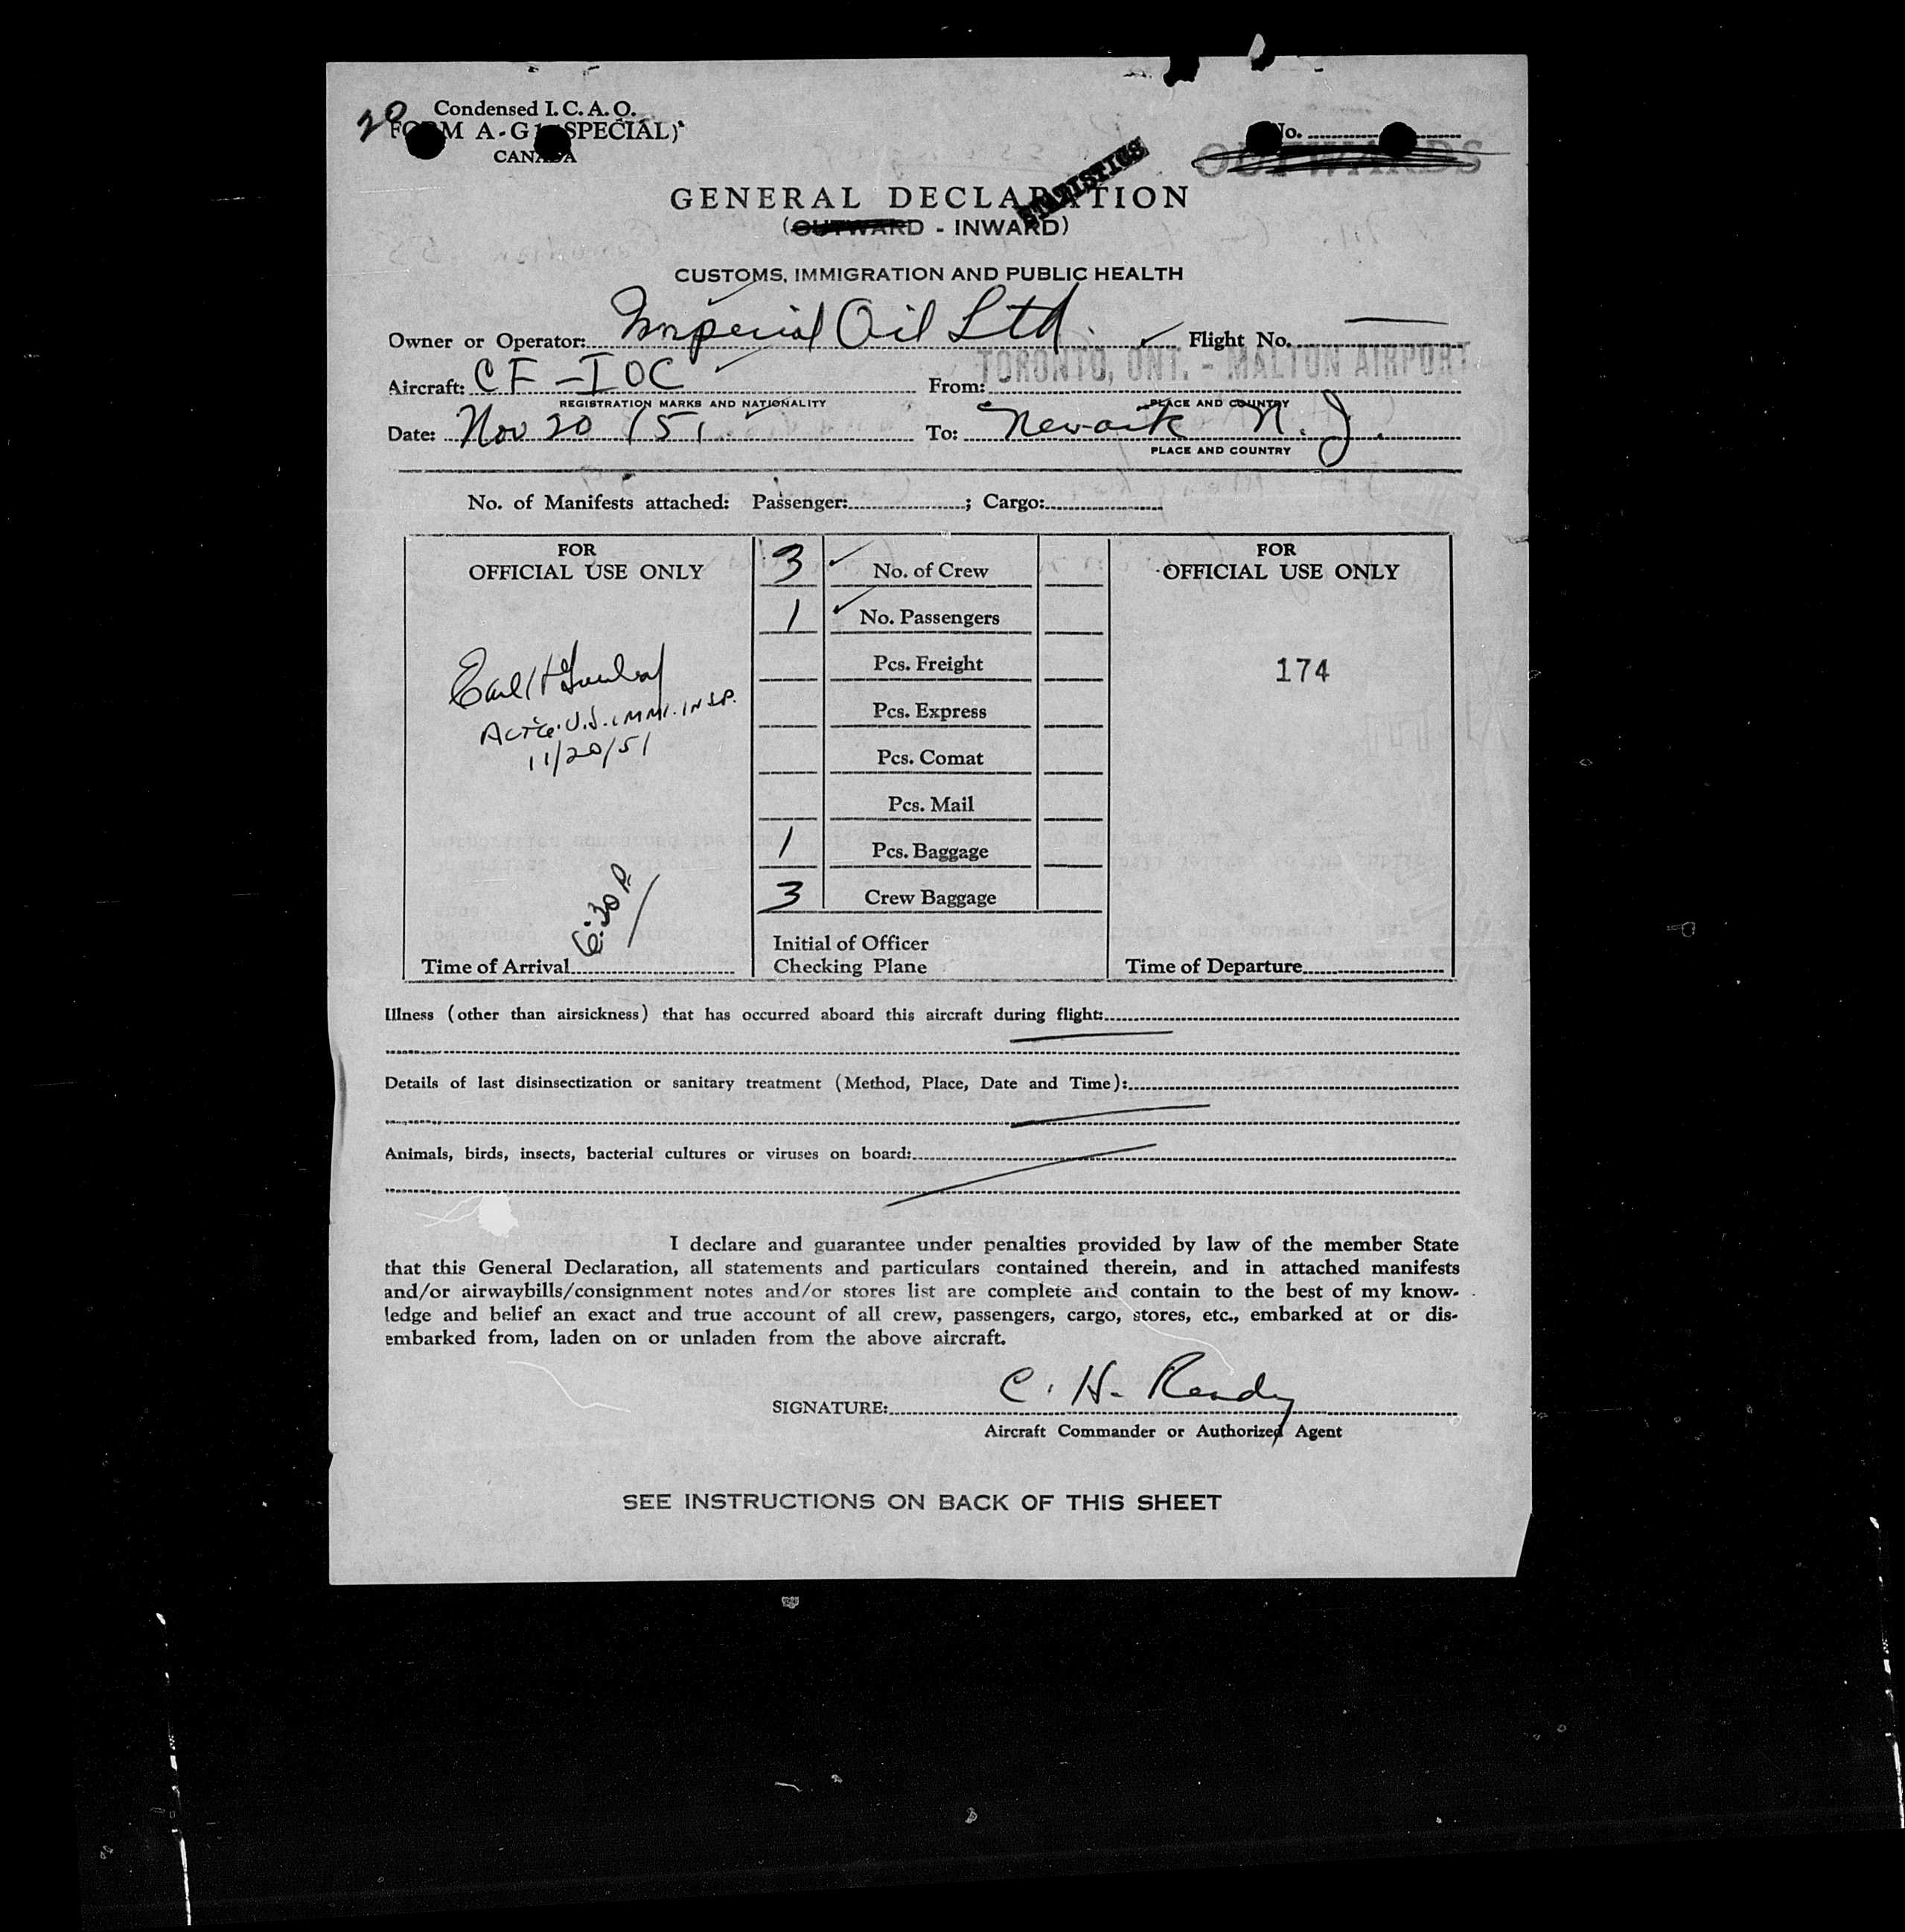 20
Condensed I. C. A. O.
FORM A-G1 (SPECIAL)
CANADA
No.
OUTWARDS
STATISTICS
GENERAL DECLARATION
(OUTWARD - INWARD)
CUSTOMS, IMMIGRATION AND PUBLIC HEALTH
Owner or Operator: Imperial Oil Ltd. Flight No. —
Aircraft: CF-IOC From: TORONTO, ONT. - MALTON AIRPORT
REGISTRATION MARKS AND NATIONALITY PLACE AND COUNTRY
Date: Nov 20 / 51 To: Newark N. J.
PLACE AND COUNTRY
No. of Manifests attached: Passenger: ; Cargo:
FOR
OFFICIAL USE ONLY
3 No. of Crew
FOR
OFFICIAL USE ONLY
1 No. Passengers
Pcs. Freight
174
Earl H
Acti'g. U.S. IMMI. INSP.
11/20/51
Pcs. Express
Pcs. Comat
Pcs. Mail
1 Pcs. Baggage
3 Crew Baggage
6:30 P
Time of Arrival
Initial of Officer
Checking Plane
Time of Departure
Illness (other than airsickness) that has occurred aboard this aircraft during flight:
Details of last disinsectization or sanitary treatment (Method, Place, Date and Time):
Animals, birds, insects, bacterial cultures or viruses on board:
I declare and guarantee under penalties provided by law of the member State
that this General Declaration, all statements and particulars contained therein, and in attached manifests
and/or airwaybills/consignment notes and/or stores list are complete and contain to the best of my know-
ledge and belief an exact and true account of all crew, passengers, cargo, stores, etc., embarked at or dis-
embarked from, laden on or unladen from the above aircraft.
SIGNATURE: C. H. Ready
Aircraft Commander or Authorized Agent
SEE INSTRUCTIONS ON BACK OF THIS SHEET